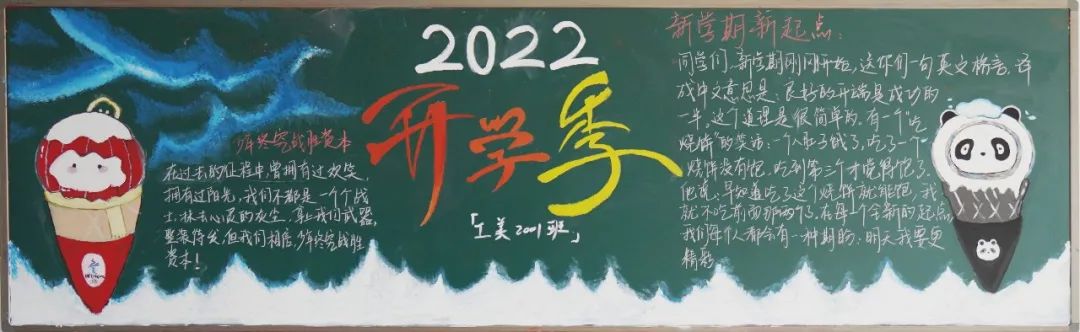 2022
开学季
「工美2001班」
少年终究战胜资本
在过去的征程中,曾拥有过欢笑,
拥有过阳光,我们不都是一个个战
士,抹去心灵的灰尘,拿出我们武器,
整装待发,但我们相信,少年终究战胜
资本!
新学期新起点:
同学们,新学期刚刚开始,送你们一句英文格言,译
成中文意思是:良好的开端是成功的
一半,这个道理是很简单的,有一个"吃
烧饼"的笑话:一个人肚子饿了,吃了一个
烧饼没有饱,吃到第三个才觉得饱了.
他说,早知道吃了这个烧饼就能饱,我
就不吃前面那两个了,在每一个全新的起点,
我们每个人都会有一种期盼:明天我要更
精彩.